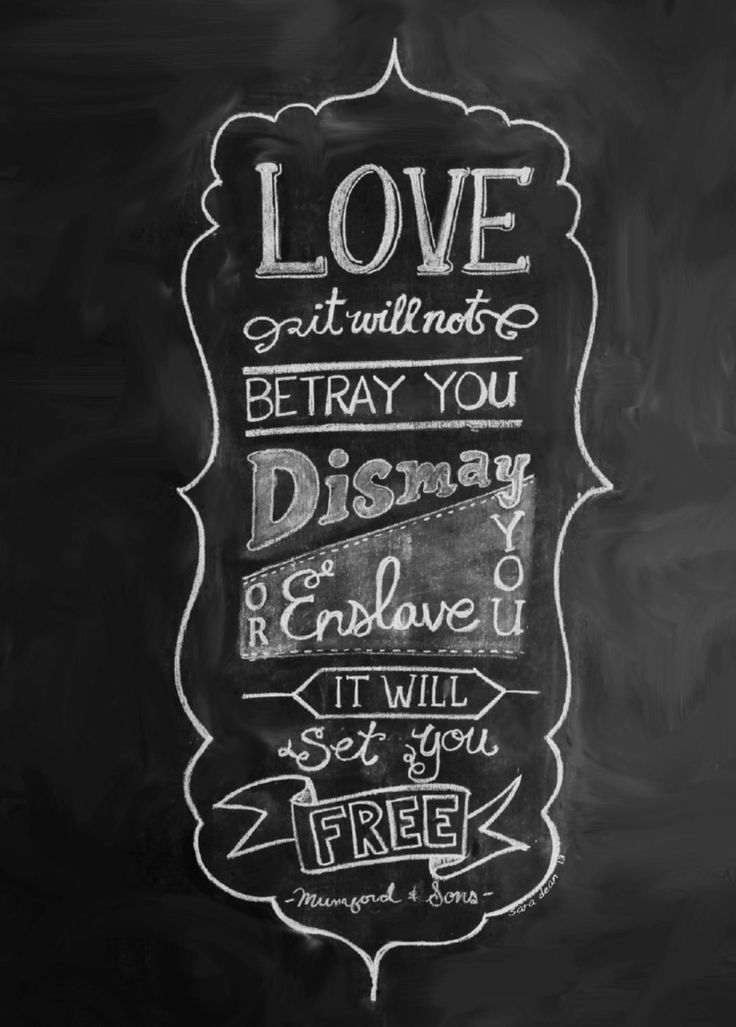 LOVE
it will not
BETRAY YOU
Dismay
OR Enslave YOU
IT WILL
Set you
FREE
-Mumford & Sons-
sara dean 13